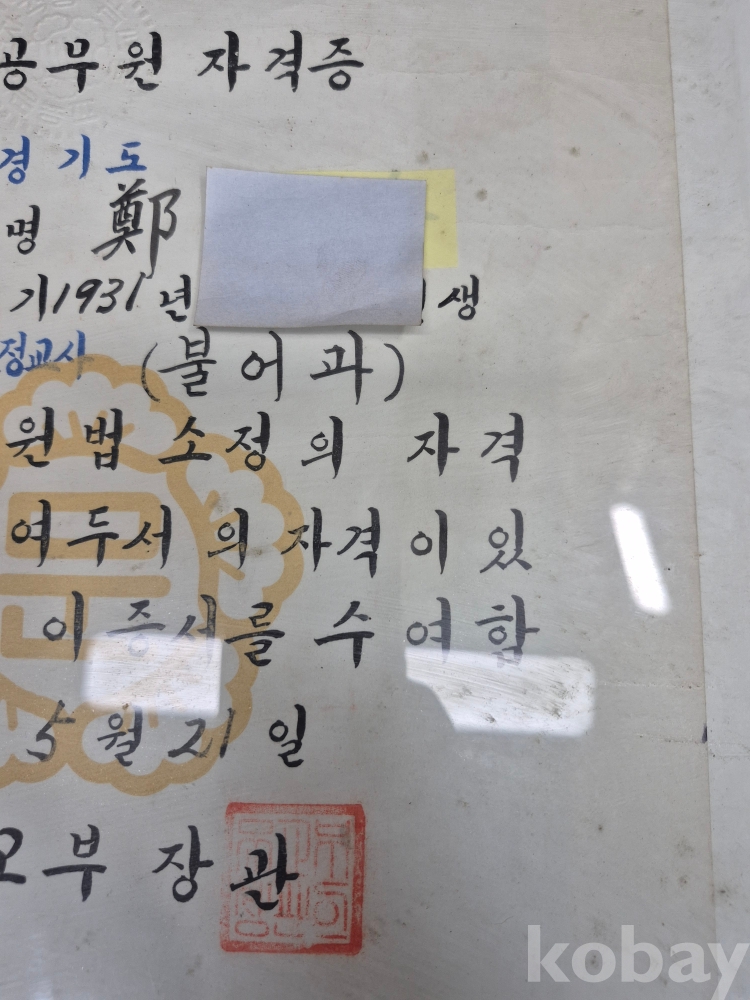 공무원 자격증
경기도
명 鄭
기 1931년 생
정교사 (불어과)
원법 소정의 자격
여두서의 자격이 있
이 증서를 수여함
5월 21일
부장관
kobay